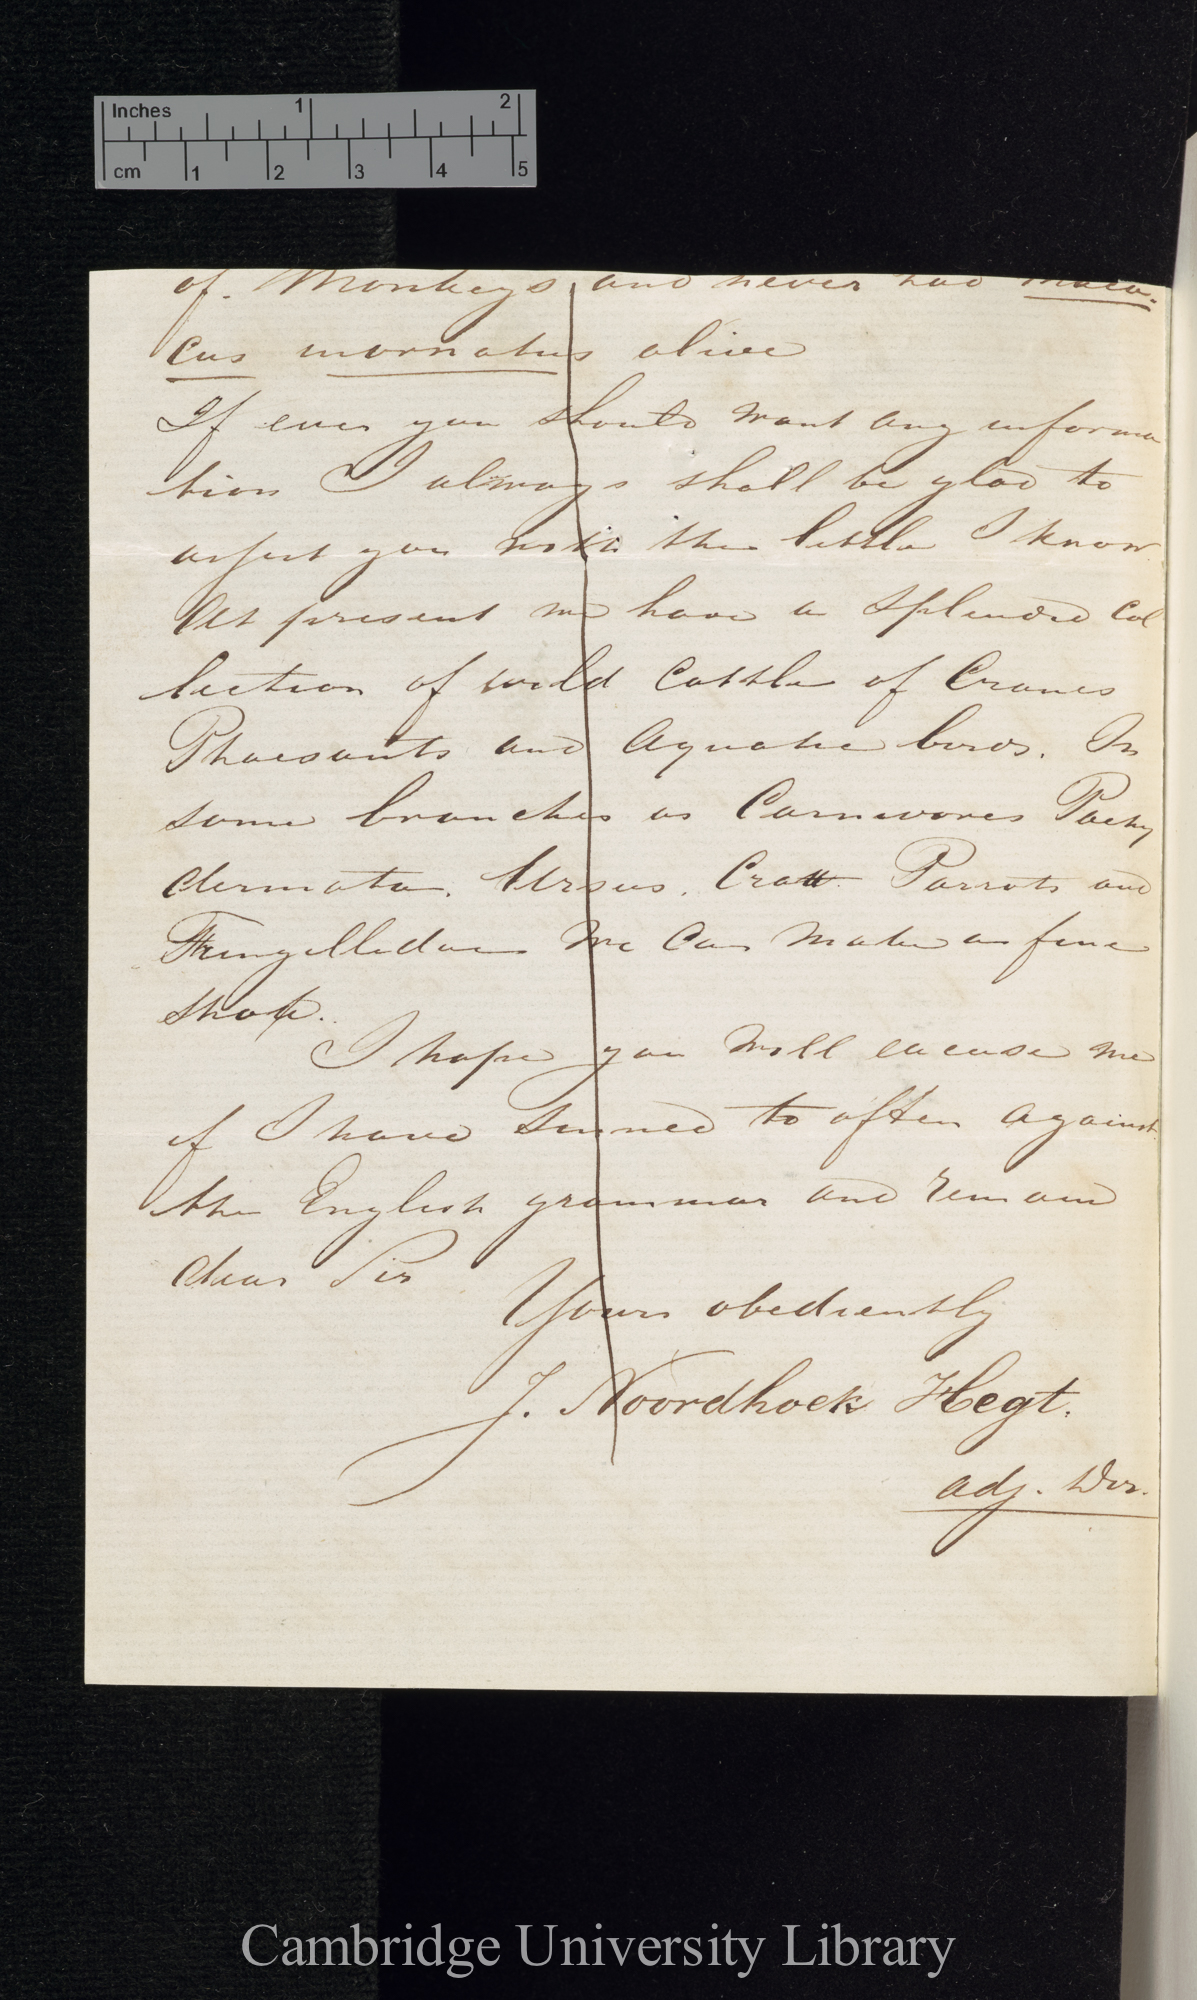 Inches 1 2
cm 1 2 3 4 5
of. Monkeys and never had Maca-
cus inornatus alive
If ever you should want any informa
tion I always shall be glad to
assist you with the little I know.
At present we have a splendid col
lection of wild Cattle of Cranes
Phaesants and Aquatic birds. In
some branches as Carnivores Pachy
dermata. Ursus. Parrots and
Fringillidae We Can Make a fine
I hope you will excuse me
if I have sinned to often against
the English grammar and remain
dear Sir
Yours obediently
J. Noordhoek Hegt.
adj. Dir.
Cambridge University Library